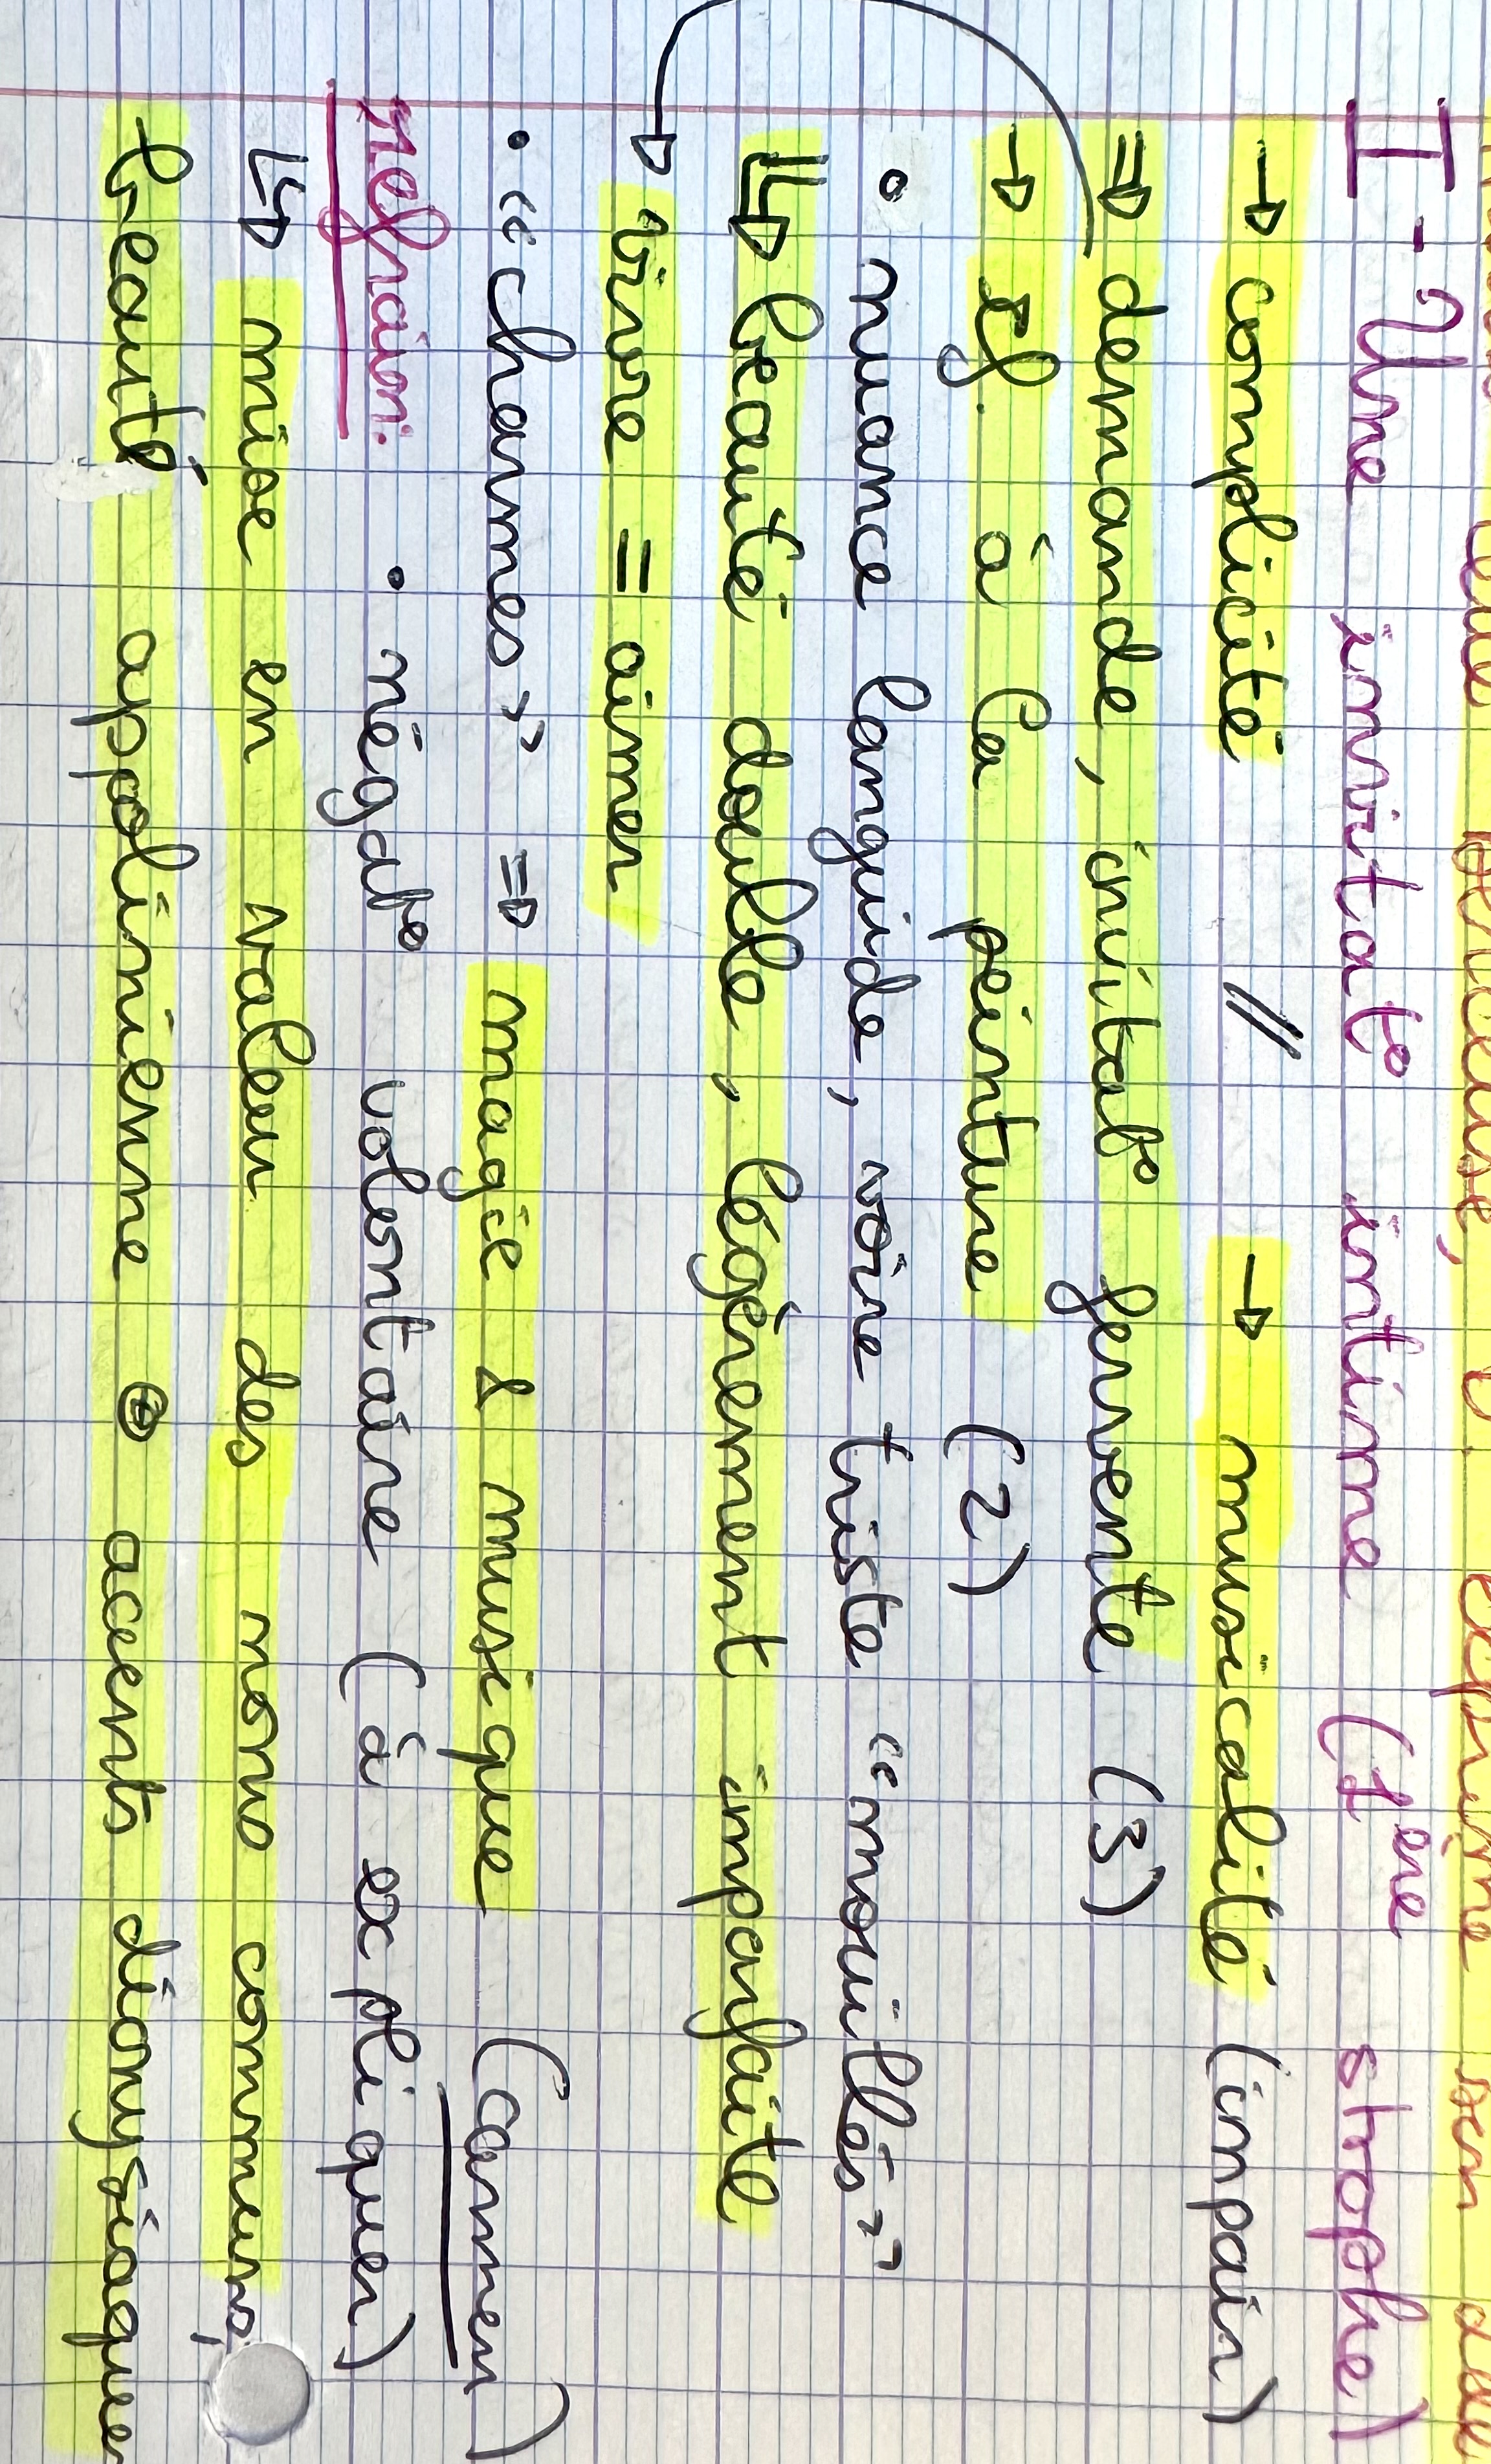 exprime son
I - Une invitat° intime (1ère strophe)
→ complicité // → musicalité (impair)
⇒ demande, invitat° fervente (3)
→ rf. à la peinture (2)
• nuance languide, voire triste "mouillés"
↳ beauté double, légèrement imparfaite
→ vivre = aimer
• "charmes" ⇒ magie & musique (carmen)
refrain: • négat° volontaire (à expliquer)
↳ mise en valeur des noms communs,
beauté appolinienne ⊕ accents dionysiaques